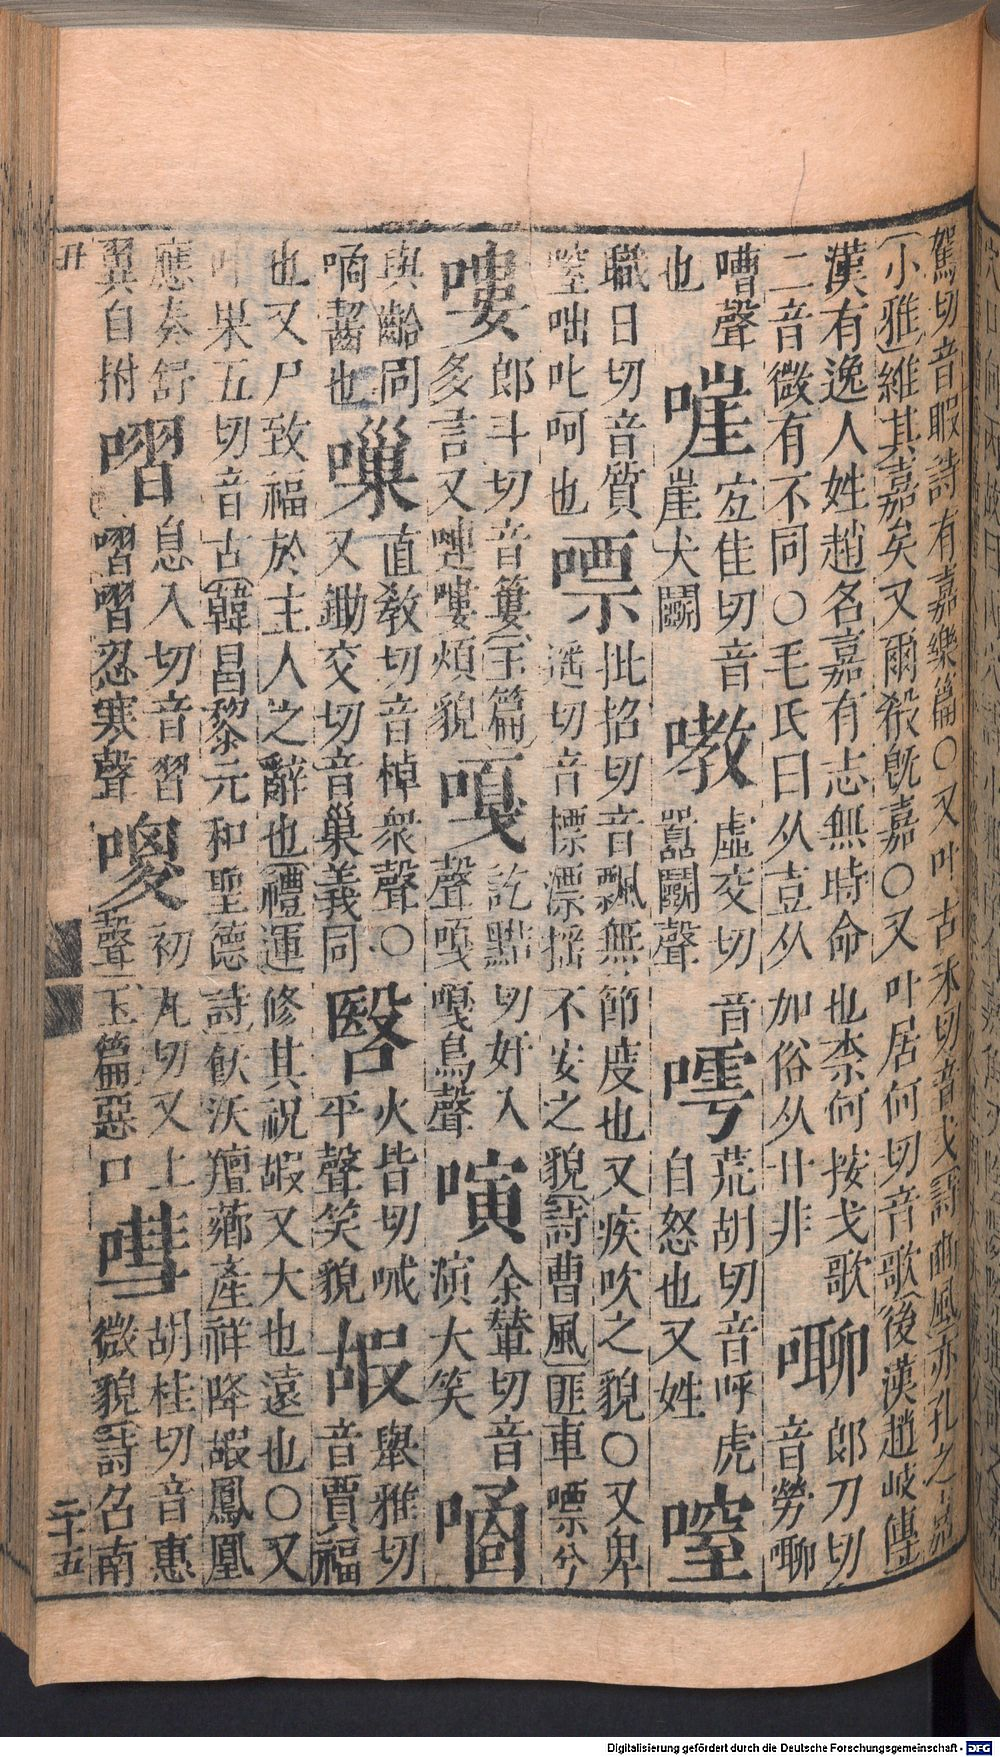 駕切音暇詩有嘉樂篇○又叶古禾切音戈詩豳風亦孔之嘉
小雅維其嘉矣又爾殽旣嘉○又叶居何切音歌後漢趙岐傳
漢有逸人姓趙名嘉有志無時命也柰何按戈歌
二音微有不同○毛氏曰从壴从加俗从廿非
嘐郎刀切音勞嘐
嘈聲也
啀宜佳切音崖犬鬭
嘋虛交切音囂鬭聲
嘑荒胡切音呼虎自怒也又姓
㗌職日切音質㗌咄叱呵也
嘌批招切音飄無節度也又疾吹之貌○又卑遥切音標漂搖不安之貌詩曹風匪車嘌兮
嘍郎斗切音簍玉篇多言又嗹嘍煩貌
嘎訖黠切好入聲嘎嘎鳥聲
㖶余輦切音演大笑
嗰與齡同嗰齧也
嘄直敎切音棹衆聲○又鋤交切音巢義同
嘒火皆切喊平聲笑貌
嘏舉雅切音賈福
也又尸致福於主人之辭也禮運修其祝嘏又大也遠也○又
叶果五切音古韓昌黎元和聖德詩飮沃羶薌產祥降嘏鳳凰
應奏舒翼自拊
嘃息入切音習嘃嘃忍寒聲
㗫初瓦切又上聲玉篇惡口
嘒胡桂切音惠微貌詩召南
丑
二十五
Digitalisierung gefördert durch die Deutsche Forschungsgemeinschaft - DFG